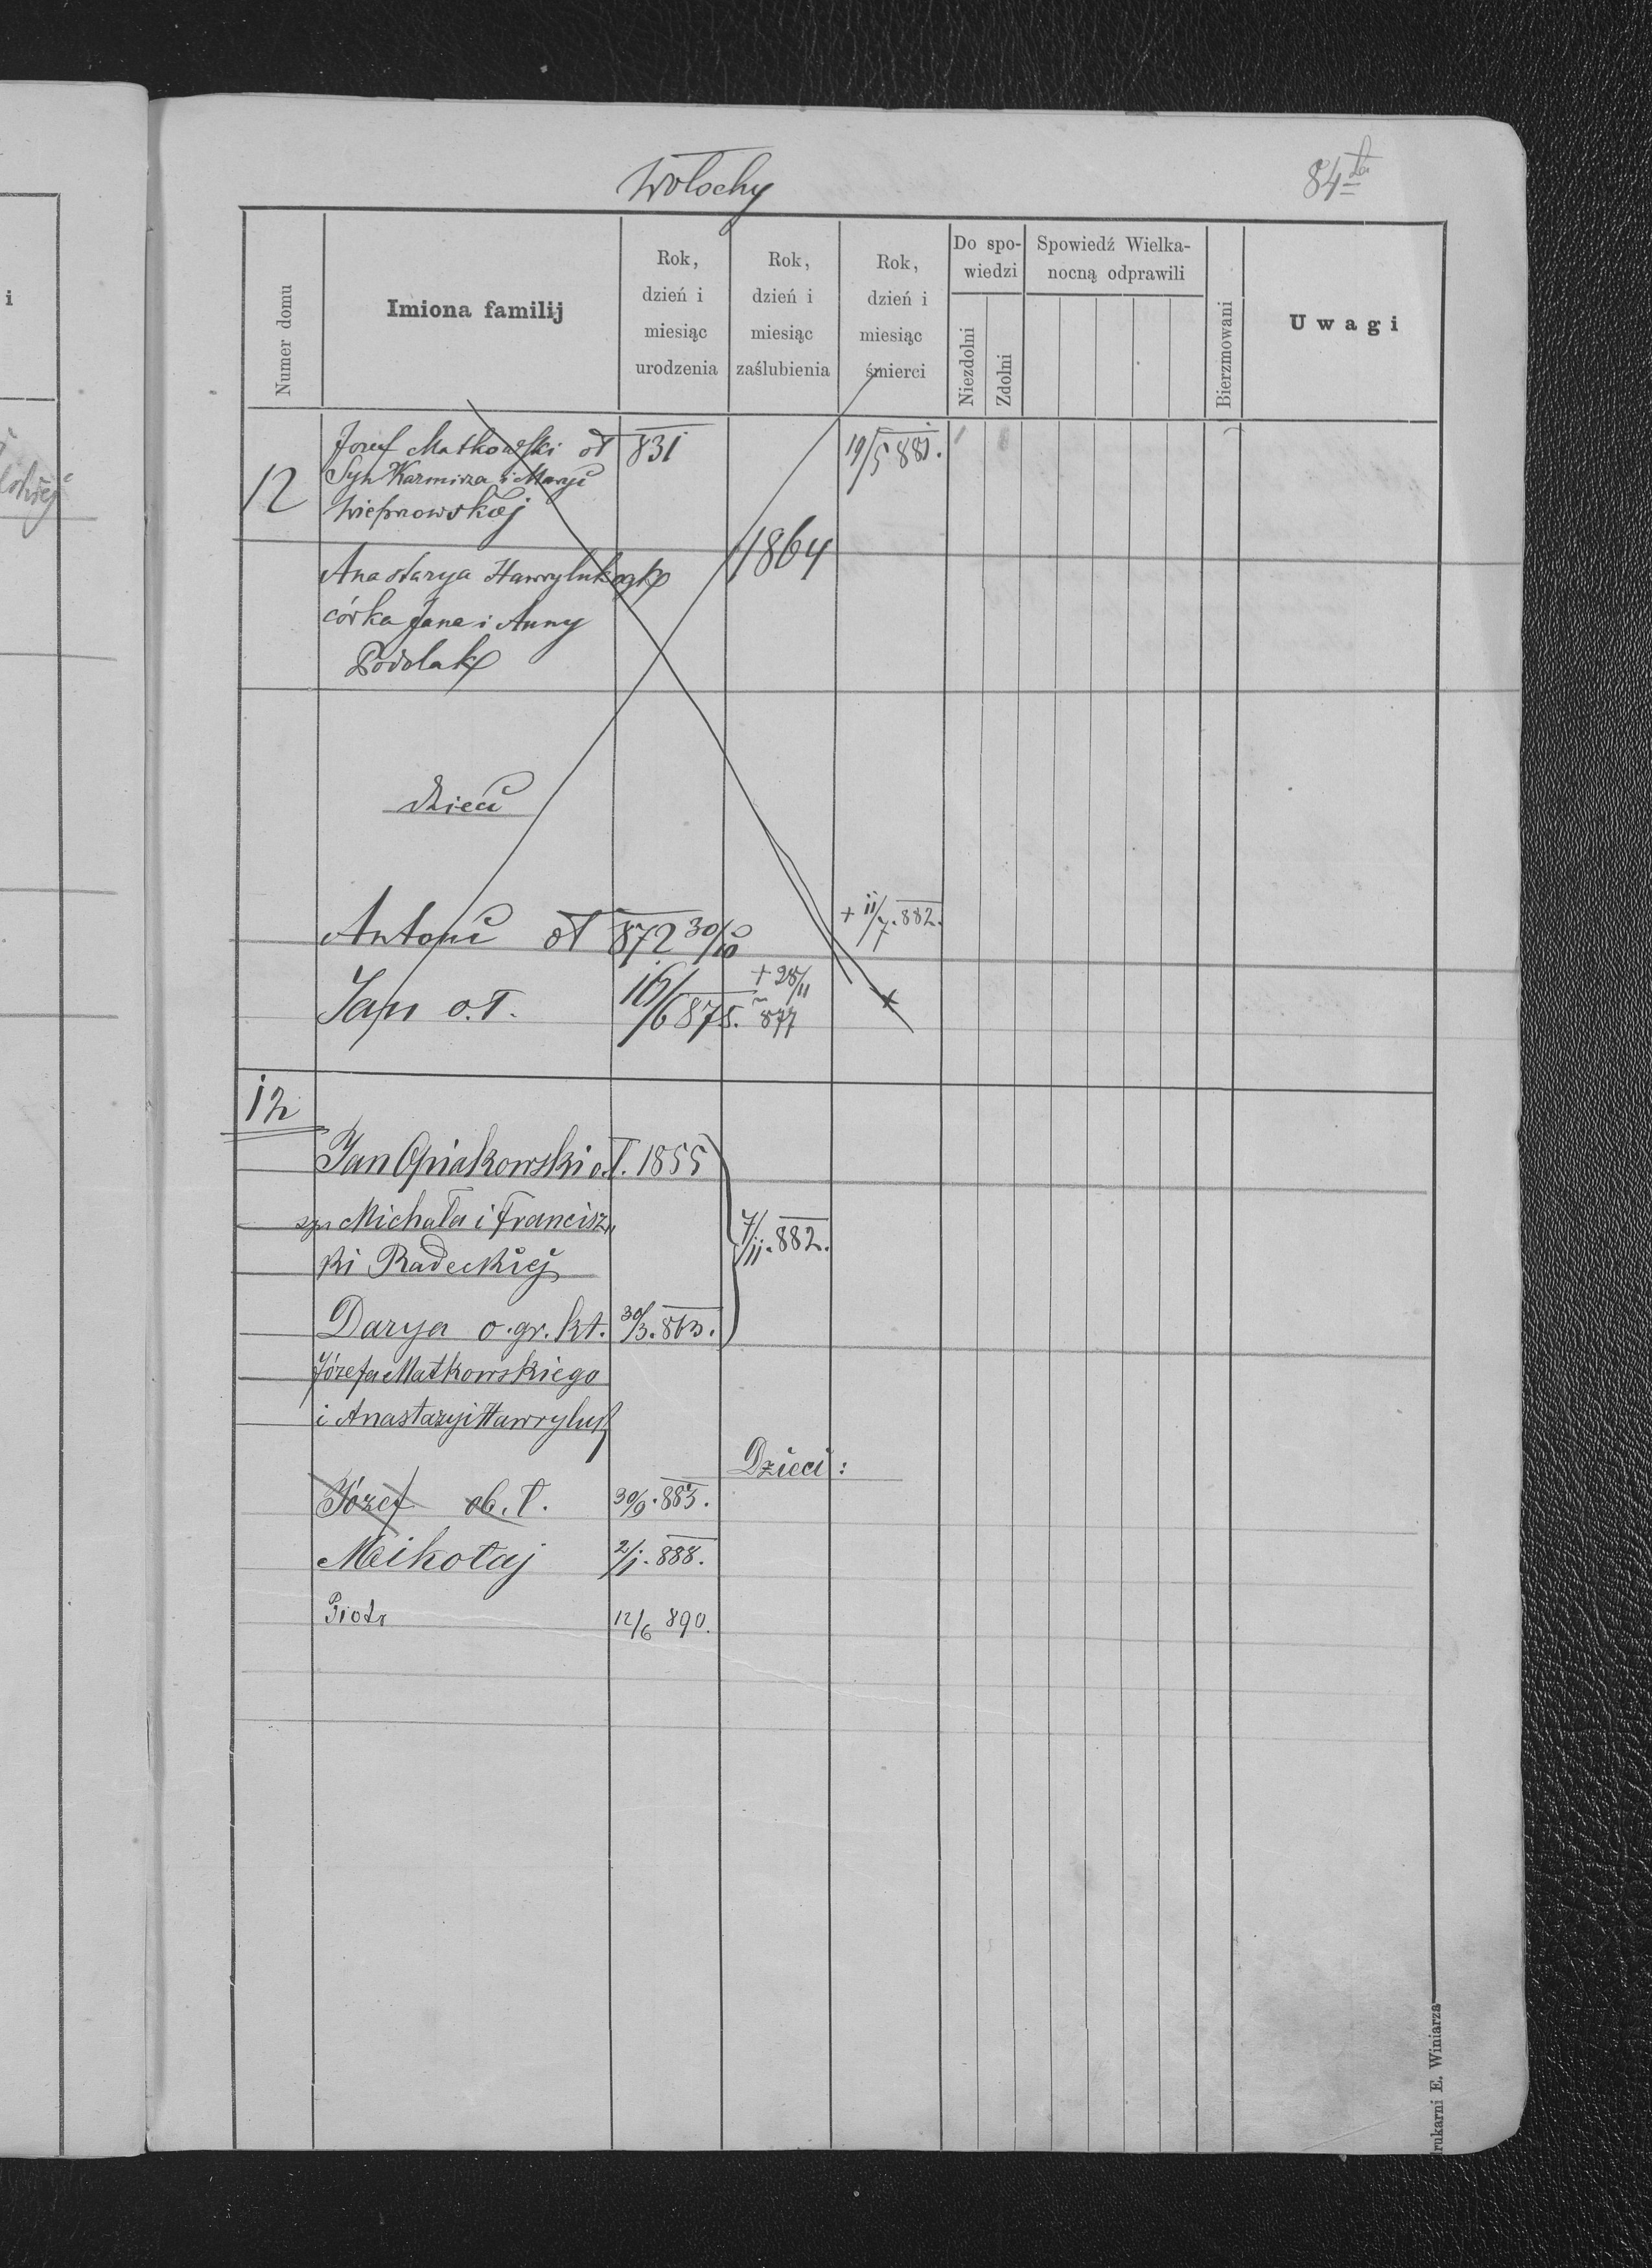 Wołochy
84
Numer domu
Imiona familij
Rok, dzień i miesiąc urodzenia
Rok, dzień i miesiąc zaślubienia
Rok, dzień i miesiąc śmierci
Do spowiedzi
Niezdolni
Zdolni
Spowiedź Wielkanocną odprawili
Bierzmowani
Uwagi
12
Jozef Matkowski oł 831 19/5 881.
Syn Kazmirza i Maryi
Wieprowskiej
Anastazya Hawryluk ogk 1864
córka Jana i Anny
Podolak
dzieci
Antoni oł 872 30/10 + 11/7. 882.
Jan o.ł. 16/6 875. + 28/11 877
12
Jan Opiakowski o.ł. 1855
syn Michała i Francisz„
ki Radeckiej
7/11. 882.
Darya o. gr. kt. 30/3. 863.
Józefa Matkowskiego
i Anastazyi Hawryluk
Dzieci:
Józef ob. ł. 30/9. 883.
Mikołaj 2/1. 888.
Piotr 12/6 890.
rukarni E. Winiarza
i